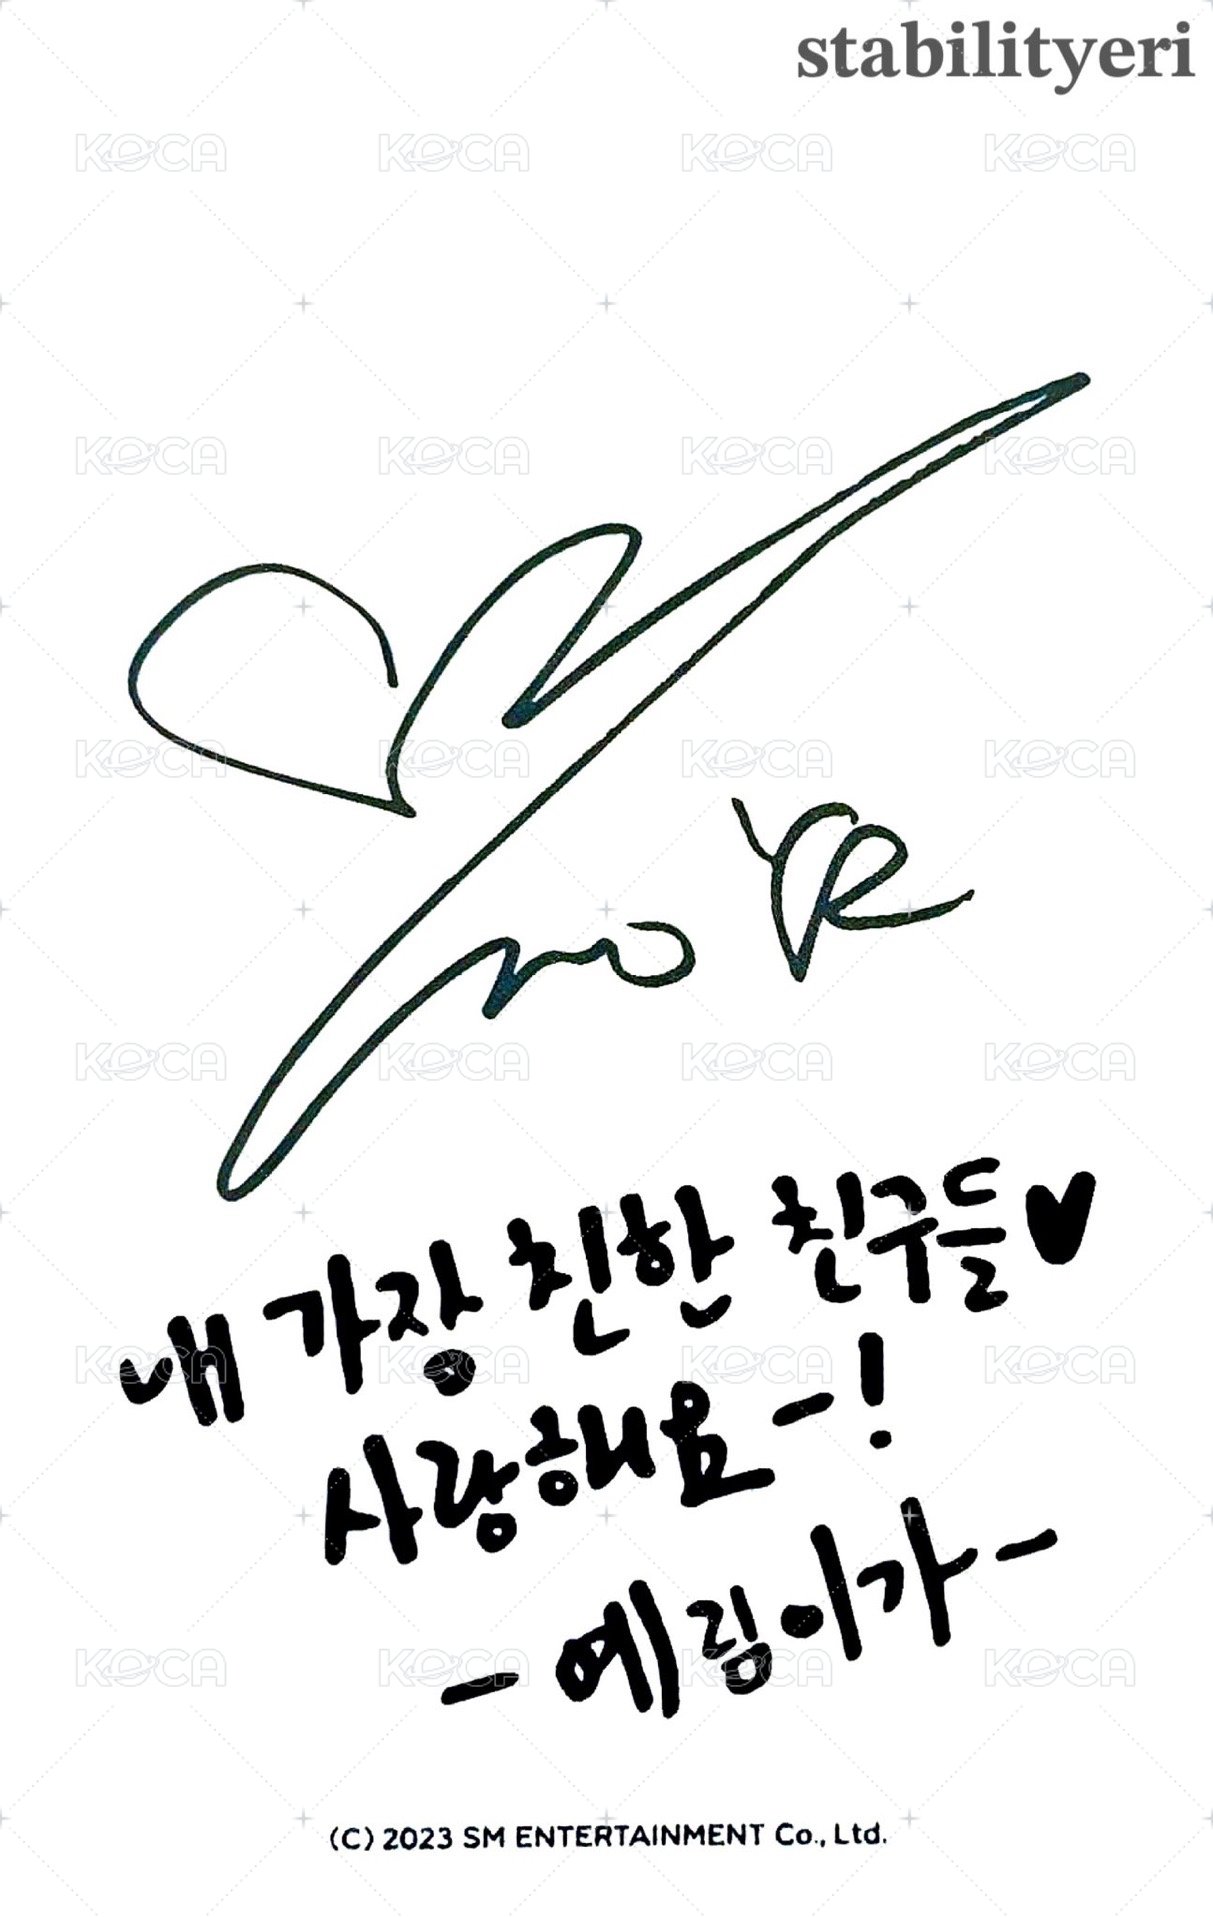 stabilityeri
YR
내 가장 친한 친구들♥
사랑해요-!
- 예림이가 -
(C) 2023 SM ENTERTAINMENT Co., Ltd.
KOCA